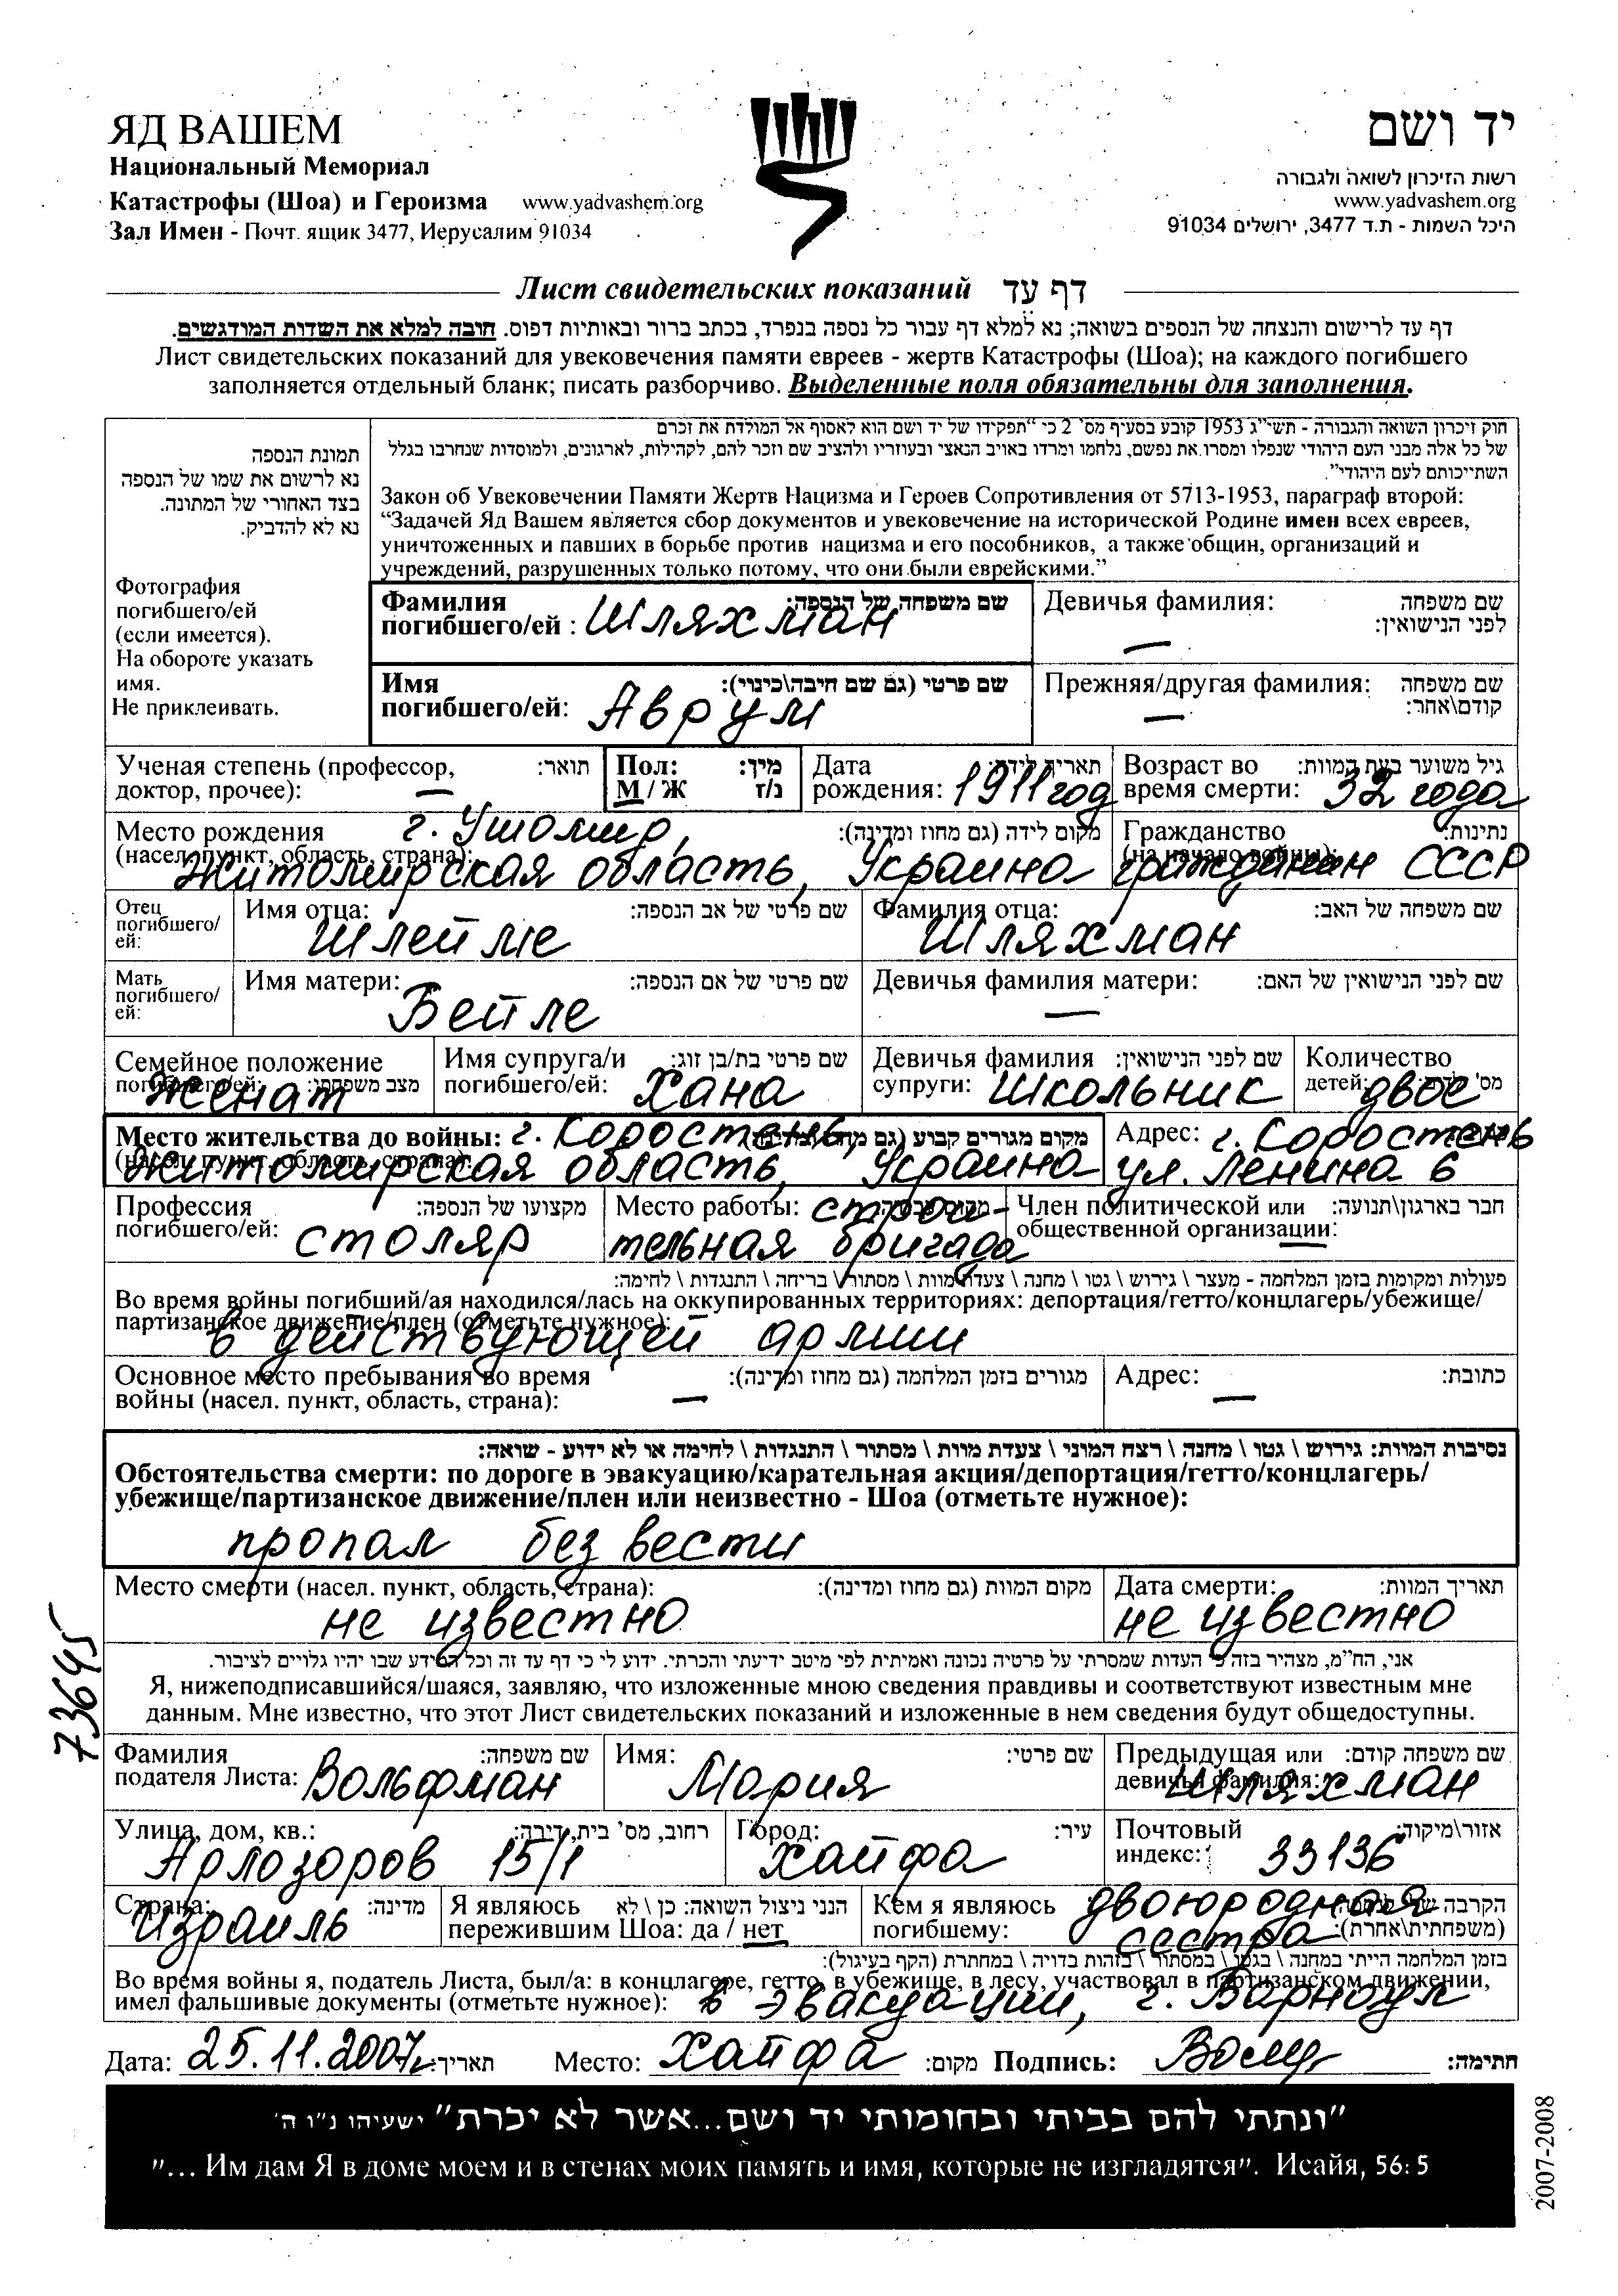 ЯД ВАШЕМ
יד ושם
Национальный Мемориал
Катастрофы (Шоа) и Героизма www.yadvashem.org
Зал Имен - Почт. ящик 3477, Иерусалим 91034
רשות הזיכרון לשואה ולגבורה
www.yadvashem.org
היכל השמות - ת.ד 3477, ירושלים 91034
Лист свидетельских показаний דף עד
דף עד לרישום והנצחה של הנספים בשואה; נא למלא דף עבור כל נספה בנפרד, בכתב ברור ובאותיות דפוס. חובה למלא את השדות המודגשים.
Лист свидетельских показаний для увековечения памяти евреев - жертв Катастрофы (Шоа); на каждого погибшего
заполняется отдельный бланк; писать разборчиво. Выделенные поля обязательны для заполнения.
תמונת הנספה
נא לרשום את שמו של הנספה
בצד האחורי של המתונה.
נא לא להדביק.
Фотография
погибшего/ей
(если имеется).
На обороте указать
имя.
Не приклеивать.
חוק זיכרון השואה והגבורה - תשי"ג 1953 קובע בסעיף מס' 2 כי "תפקידו של יד ושם הוא לאסוף אל המולדת את זכרם
של כל אלה מבני העם היהודי שנפלו ומסרו את נפשם, נלחמו ומרדו באויב הנאצי ובעוזריו ולהציב שם וזכר להם, לקהילות, לארגונים, ולמוסדות שנחרבו בגלל
השתייכותם לעם היהודי".
Закон об Увековечении Памяти Жертв Нацизма и Героев Сопротивления от 5713-1953, параграф второй:
“Задачей Яд Вашем является сбор документов и увековечение на исторической Родине имен всех евреев,
уничтоженных и павших в борьбе против нацизма и его пособников, а также общин, организаций и
учреждений, разрушенных только потому, что они были еврейскими.”
Фамилия שם משפחה של הנספה:
погибшего/ей : Шляхман
Девичья фамилия: שם משפחה
לפני הנישואין:
—
Имя שם פרטי (גם שם חיבה\כינוי):
погибшего/ей: Аврум
Прежняя/другая фамилия: שם משפחה
קודם\אחר:
—
Ученая степень (профессор, תואר:
доктор, прочее): —
Пол: מין:
М / Ж נ/ז
Дата תאריך לידה:
рождения: 1911 год
Возраст во גיל משוער בעת המוות:
время смерти: 32 года
Место рождения г. Ушомир, מקום לידה (גם מחוז ומדינה):
(насел. пункт, область, страна):
Житомирская область, Украина
Гражданство נתינות:
(на начало войны):
гражданин СССР
Отец
погибшего/
ей:
Имя отца: שם פרטי של אב הנספה:
Шлейме
Фамилия отца: שם משפחה של האב:
Шляхман
Мать
погибшего/
ей:
Имя матери: שם פרטי של אם הנספה:
Бейле
Девичья фамилия матери: שם לפני הנישואין של האם:
—
Семейное положение
погибшего/ей: מצב משפחתי:
Женат
Имя супруга/и שם פרטי בת/בן זוג:
погибшего/ей: Хана
Девичья фамилия שם לפני הנישואין:
супруги: Школьник
Количество
детей: מס' ילדים:
двое
Место жительства до войны: г. Коростень, מקום מגורים קבוע (גם מחוז ומדינה):
(насел. пункт, область, страна):
Житомирская область, Украина
Адрес: г. Коростень
ул. Ленина 6
Профессия מקצועו של הנספה:
погибшего/ей: столяр
Место работы: строи-
тельная бригада
Член политической или חבר בארגון\תנועה:
общественной организации: —
פעולות ומקומות בזמן המלחמה - מעצר \ גירוש \ גטו \ מחנה \ צעדת מוות \ מסתור \ בריחה \ התנגדות \ לחימה:
Во время войны погибший/ая находился/лась на оккупированных территориях: депортация/гетто/концлагерь/убежище/
партизанское движение/плен (отметьте нужное):
в действующей армии
Основное место пребывания во время מגורים בזמן המלחמה (גם מחוז ומדינה):
войны (насел. пункт, область, страна): —
Адрес: כתובת:
—
נסיבות המוות: גירוש \ גטו \ מחנה \ רצח המוני \ צעדת מוות \ מסתור \ התנגדות \ לחימה או לא ידוע - שואה:
Обстоятельства смерти: по дороге в эвакуацию/карательная акция/депортация/гетто/концлагерь/
убежище/партизанское движение/плен или неизвестно - Шоа (отметьте нужное):
пропал без вести
Место смерти (насел. пункт, область, страна): מקום המוות (גם מחוז ומדינה):
не известно
Дата смерти: תאריך המוות:
не известно
אני, הח"מ, מצהיר בזה כי העדות שמסרתי על פרטיה נכונה ואמיתית לפי מיטב ידיעתי והכרתי. ידוע לי כי דף עד זה וכל המידע שבו יהיו גלויים לציבור.
Я, нижеподписавшийся/шаяся, заявляю, что изложенные мною сведения правдивы и соответствуют известным мне
данным. Мне известно, что этот Лист свидетельских показаний и изложенные в нем сведения будут общедоступны.
Фамилия שם משפחה:
подателя Листа: Вольфман
Имя: שם פרטי:
Мария
Предыдущая или שם משפחה קודם:
девичья фамилия:
Шляхман
Улица, дом, кв.: רחוב, מס' בית, דירה:
Арлозоров 15/1
Город: עיר:
Хайфа
Почтовый אזור\מיקוד:
индекс: 33136
Страна: מדינה:
Израиль
Я являюсь הנני ניצול השואה: כן \ לא
пережившим Шоа: да / нет
Кем я являюсь
погибшему: двоюродная
сестра (משפחתית\אחרת):
בזמן המלחמה הייתי במחנה \ בגטו \ במסתור \ בזהות בדויה \ במחתרת (הקף בעיגול):
Во время войны я, податель Листа, был/а: в концлагере, гетто, в убежище, в лесу, участвовал в партизанском движении,
имел фальшивые документы (отметьте нужное): в эвакуации, г. Барнаул
Дата: 25.11.2007г. תאריך: Место: Хайфа מקום: Подпись: חתימה:
"ונתתי להם בביתי ובחומותי יד ושם...אשר לא יכרת" ישעיהו נ"ו ה'
"... Им дам Я в доме моем и в стенах моих память и имя, которые не изгладятся". Исайя, 56:5
73645
2007-2008